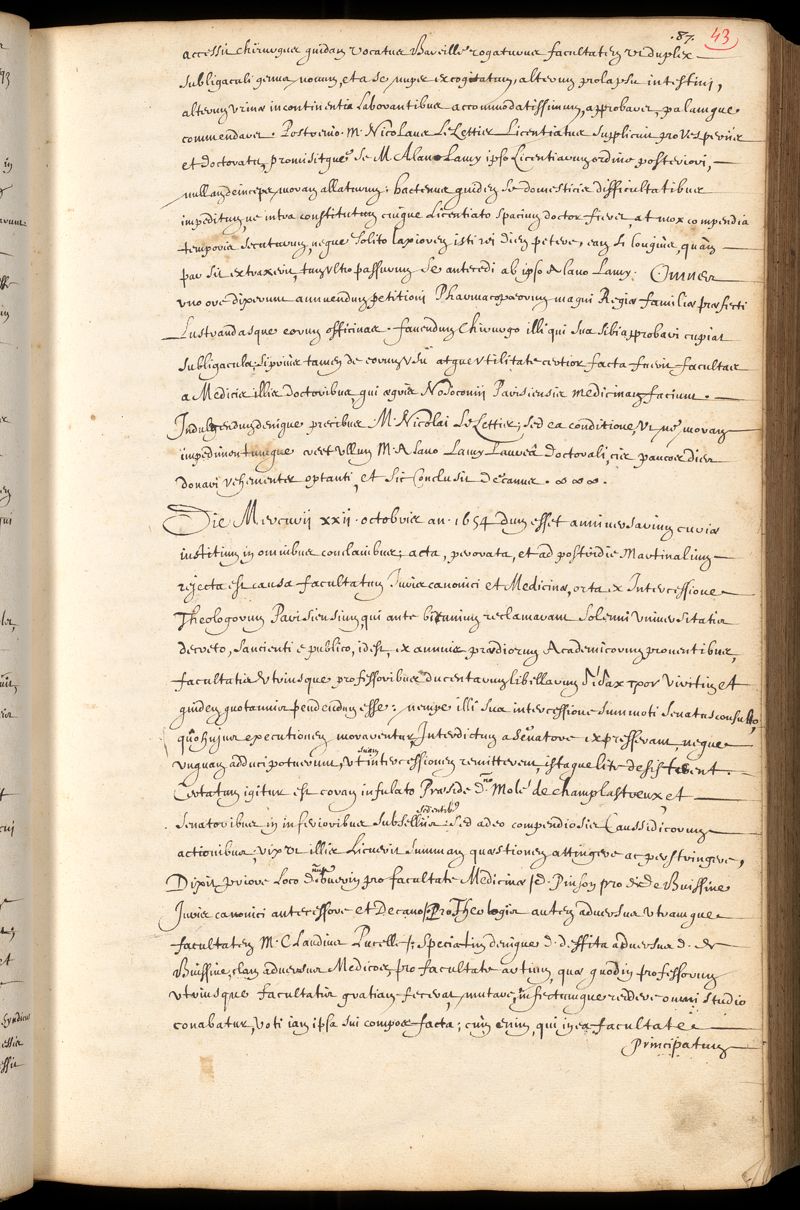 .87. 43
accessit chirurgus quidam vocatus Bareille rogaturus facultatem ut duplex
subligaculi genus novum, et a se nuper excogitatum, alterum prolapsu intestini,
alterum urinæ incontinentia laborantibus accommodatissimum, approbaret, palamque
commendaret. Postremo M. Nicolaus Le Lettier Licentiatus supplicuit pro Vesperiis
et doctoratu, promisitque se M. Alano Lamy ipso Licentiarum ordine posteriori,
nullam deinceps moram allaturum; hactenus quidem se domesticis difficultatibus
impeditum, ne intra constitutum cuique Licentiato spatium doctor fieret at mox compendia
temporis secuturum, neque solito laxiorem isti rei diem petere, eam si longius, quàm
par sit extraxerit, tum ultro passurum se antecedi ab ipso Alano Lamy. Omnes
uno ore dixerunt annuendum petitioni Pharmacopæorum magni Regis familiæ præfecti
Lustrandasque eorum officinas. favendum Chirurgo illi qui sua sibi approbari cupiat
subligacula; si prius tamen de eorum usu atque utilitate certior facta fuerit facultas
a Medicis illis doctoribus qui ægris Nosocomii Parisiensis medicinam faciunt.
Indulgendum denique precibus M. Nicolai Le Lettier; sed ea conditione, ut ne moram
impedimentumque creet ullum M. Alano Lamy Laureâ doctorali, cis paucos dies
donari vehementer optanti, et sic Conclusit Decanus.
Die Mercurii xxii. octobris an. 1654 dum esset anniversarium curiæ
institium in omnibus conclavibus; acta, perorata, et ad postridie Martinalium
rejecta est causa facultatum Iuris canonici et Medicinæ, orta ex Intercessione
Theologorum Parisiensium, qui ante biennium reclamarant solenni universitatis
decreto, sancienti e publico, id est, ex annuis prædiorum Academicorum proventibus,
facultatis utriusque professoribus ducentarum libellarum viritim et
quidem quotannis pendendum esse: nempe illi sua intercessione summoti senatusconsulto,
quo hujus executionem morarentur Interdictum a Senatore expresserant, neque
unquam adduci potuerunt, ut suam intercessionem remitterent, istaque lite desisterent.
Certatum igitur est coram infulato Præside d.no Molé de champlastreux, et
senatoribus in inferioribus subselliis sedentib9. sed adeo compendiosis Caussidicorum
actionibus, vix ut illis licuerit summam quæstionem attingere ac perstringere,
Dixit priore loco d. pro facultate Medicinæ d. Pinson pro d. de Buissine
Iuris canonici antecessore et Decano, Pro Theologis autem adversus utramque
facultatem M. Claudius Pucelle; speciatim denique d. deffita adversus d. de
Buissine, clam adversus Medicos, pro facultate artium, quæ quod in professorum
utriusque facultatis gratiam fecerat, mutare, infectumque reddere omni studio
conabatur, voti iam ipsa sui compos facta; cum enim, qui in ea facultate
Principatum